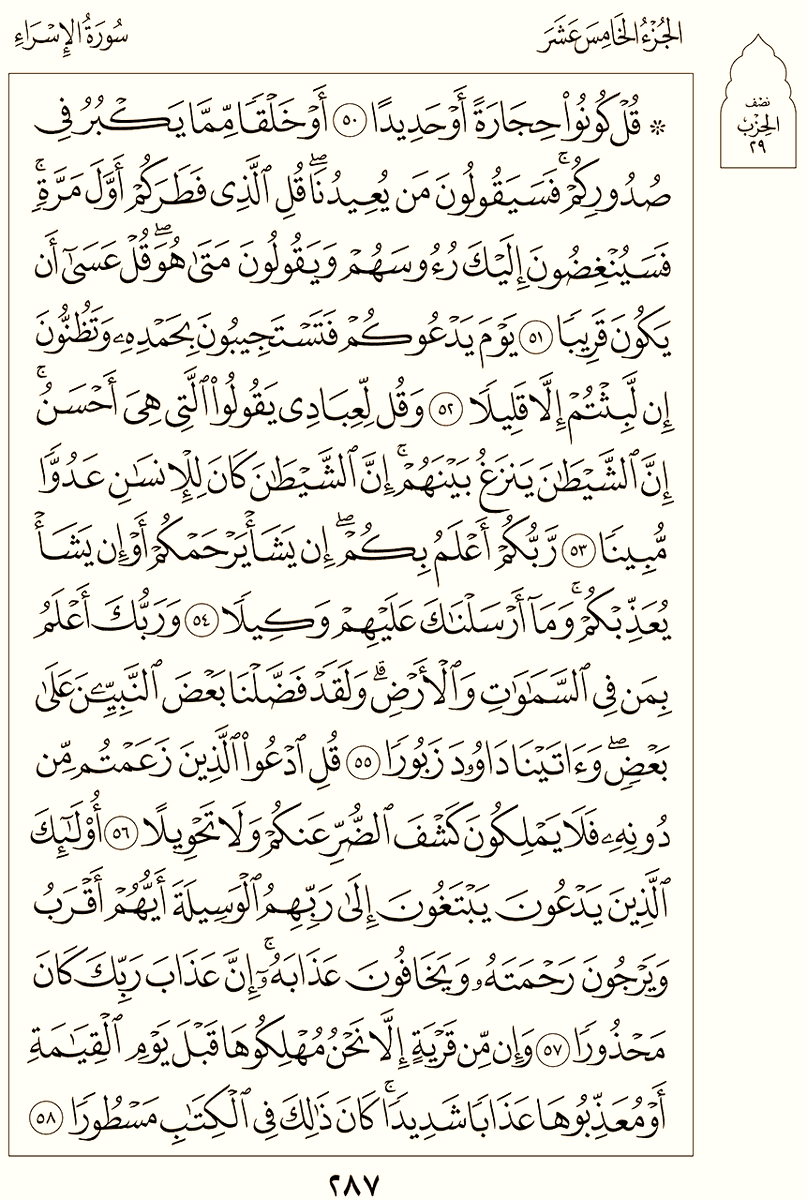 الجُزْءُ الخَامِسَ عَشَرَ
سُورَةُ الإِسْرَاءِ
نصف
الحزب
٢٩
۞ قُلْ كُونُوا۟ حِجَارَةً أَوْ حَدِيدًا ٥٠ أَوْ خَلْقًا مِّمَّا يَكْبُرُ فِى
صُدُورِكُمْ ۚ فَسَيَقُولُونَ مَن يُعِيدُنَا ۖ قُلِ ٱلَّذِى فَطَرَكُمْ أَوَّلَ مَرَّةٍ ۚ
فَسَيُنْغِضُونَ إِلَيْكَ رُءُوسَهُمْ وَيَقُولُونَ مَتَىٰ هُوَ ۖ قُلْ عَسَىٰٓ أَن
يَكُونَ قَرِيبًا ٥١ يَوْمَ يَدْعُوكُمْ فَتَسْتَجِيبُونَ بِحَمْدِهِۦ وَتَظُنُّونَ
إِن لَّبِثْتُمْ إِلَّا قَلِيلًا ٥٢ وَقُل لِّعِبَادِى يَقُولُوا۟ ٱلَّتِى هِىَ أَحْسَنُ ۚ
إِنَّ ٱلشَّيْطَـٰنَ يَنزَغُ بَيْنَهُمْ ۚ إِنَّ ٱلشَّيْطَـٰنَ كَانَ لِلْإِنسَـٰنِ عَدُوًّا
مُّبِينًا ٥٣ رَّبُّكُمْ أَعْلَمُ بِكُمْ ۖ إِن يَشَأْ يَرْحَمْكُمْ أَوْ إِن يَشَأْ
يُعَذِّبْكُمْ ۚ وَمَآ أَرْسَلْنَـٰكَ عَلَيْهِمْ وَكِيلًا ٥٤ وَرَبُّكَ أَعْلَمُ
بِمَن فِى ٱلسَّمَـٰوَٰتِ وَٱلْأَرْضِ ۗ وَلَقَدْ فَضَّلْنَا بَعْضَ ٱلنَّبِيِّـۧنَ عَلَىٰ
بَعْضٍ ۖ وَءَاتَيْنَا دَاوُۥدَ زَبُورًا ٥٥ قُلِ ٱدْعُوا۟ ٱلَّذِينَ زَعَمْتُم مِّن
دُونِهِۦ فَلَا يَمْلِكُونَ كَشْفَ ٱلضُّرِّ عَنكُمْ وَلَا تَحْوِيلًا ٥٦ أُو۟لَـٰٓئِكَ
ٱلَّذِينَ يَدْعُونَ يَبْتَغُونَ إِلَىٰ رَبِّهِمُ ٱلْوَسِيلَةَ أَيُّهُمْ أَقْرَبُ
وَيَرْجُونَ رَحْمَتَهُۥ وَيَخَافُونَ عَذَابَهُۥٓ ۚ إِنَّ عَذَابَ رَبِّكَ كَانَ
مَحْذُورًا ٥٧ وَإِن مِّن قَرْيَةٍ إِلَّا نَحْنُ مُهْلِكُوهَا قَبْلَ يَوْمِ ٱلْقِيَـٰمَةِ
أَوْ مُعَذِّبُوهَا عَذَابًا شَدِيدًا ۚ كَانَ ذَٰلِكَ فِى ٱلْكِتَـٰبِ مَسْطُورًا ٥٨
٢٨٧